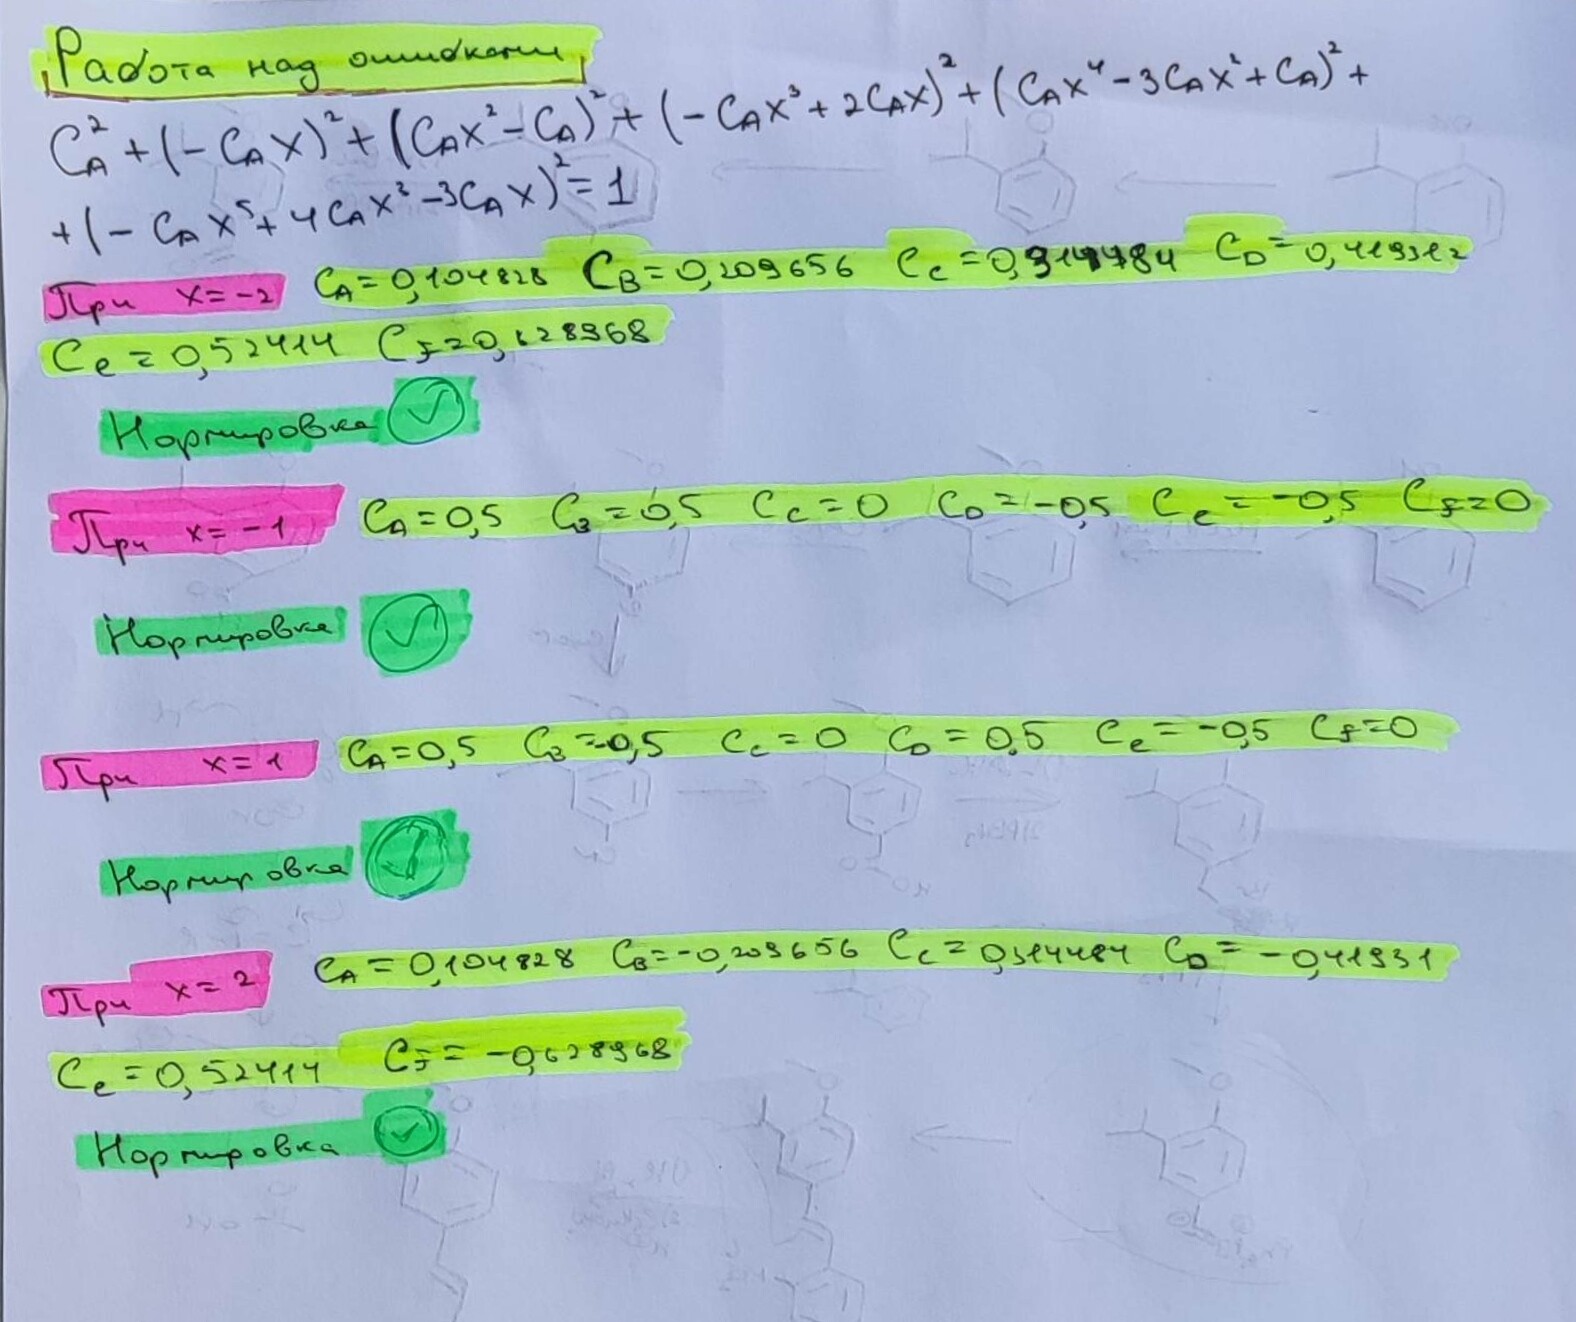 Работа над ошибками
C_A² + (- C_A x)² + (C_A x² - C_A)² + (- C_A x³ + 2 C_A x)² + (C_A x⁴ - 3 C_A x² + C_A)² +
+ (- C_A x⁵ + 4 C_A x³ - 3 C_A x)² = 1
При x = -2 C_A = 0,104828 C_B = 0,209656 C_c = C_D = 0,419312
C_e = 0,52414 C_F = 0,628968
Нормировка
При x = -1 C_A = 0,5 C_B = 0,5 C_c = 0 C_D = -0,5 C_e = -0,5 C_F = 0
Нормировка
При x = 1 C_A = 0,5 C_B = -0,5 C_c = 0 C_D = 0,5 C_e = -0,5 C_F = 0
Нормировка
При x = 2 C_A = 0,104828 C_B = -0,209656 C_c = 0,314484 C_D = -0,41931
C_e = 0,52414 C_F = -0,628968
Нормировка